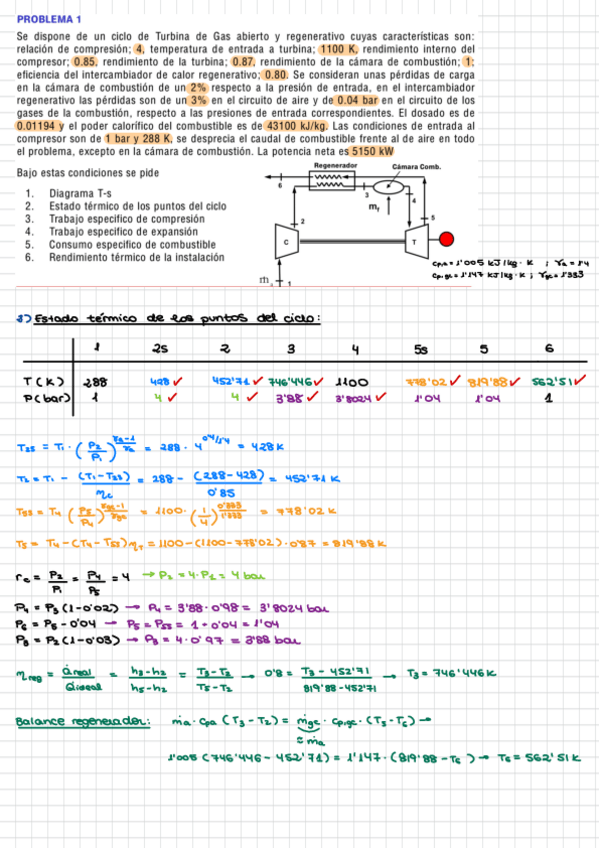 PROBLEMA 1
Se dispone de un ciclo de Turbina de Gas abierto y regenerativo cuyas características son:
relación de compresión; 4, temperatura de entrada a turbina; 1100 K, rendimiento interno del
compresor; 0.85, rendimiento de la turbina; 0.87, rendimiento de la cámara de combustión; 1;
eficiencia del intercambiador de calor regenerativo; 0.80. Se consideran unas pérdidas de carga
en la cámara de combustión de un 2% respecto a la presión de entrada, en el intercambiador
regenerativo las pérdidas son de un 3% en el circuito de aire y de 0.04 bar en el circuito de los
gases de la combustión, respecto a las presiones de entrada correspondientes. El dosado es de
0.01194 y el poder calorífico del combustible es de 43100 kJ/kg. Las condiciones de entrada al
compresor son de 1 bar y 288 K, se desprecia el caudal de combustible frente al de aire en todo
el problema, excepto en la cámara de combustión. La potencia neta es 5150 kW
Bajo estas condiciones se pide
1. Diagrama T-s
2. Estado térmico de los puntos del ciclo
3. Trabajo especifico de compresión
4. Trabajo especifico de expansión
5. Consumo especifico de combustible
6. Rendimiento térmico de la instalación
Regenerador
Cámara Comb.
6
3
4
ṁf
2
5
C
T
ṁa
1
cp,a = 1'005 kJ/kg·K ; γa = 1'4
cp,gc = 1'147 kJ/kg·K ; γgc = 1'333
2) Estado térmico de los puntos del ciclo:
1 2s 2 3 4 5s 5 6
T(K) 288 428 ✓ 452'71 ✓ 746'446 ✓ 1100 778'02 ✓ 819'88 ✓ 562'51 ✓
P(bar) 1 4 ✓ 4 ✓ 3'88 ✓ 3'8024 ✓ 1'04 1'04 1
T2s = T1 · (P2/P1)^((γa-1)/γa) = 288 · 4^(0'4/1'4) = 428 K
T2 = T1 - (T1-T2s)/ηc = 288 - (288-428)/0'85 = 452'71 K
T5s = T4 (P5/P4)^((γgc-1)/γgc) = 1100 · (1/4)^(0'333/1'333) = 778'02 K
T5 = T4 - (T4-T5s)ηT = 1100 - (1100-778'02) · 0'87 = 819'88 K
rc = P2/P1 = P4/P5 = 4 → P2 = 4·P1 = 4 bar
P4 = P3 (1-0'02) → P4 = 3'88 · 0'98 = 3'8024 bar
P6 = P5 - 0'04 → P5 = P5s = 1 + 0'04 = 1'04
P3 = P2 (1-0'03) → P3 = 4 · 0'97 = 3'88 bar
ηreg = Q̇real/Q̇ideal = (h3-h2)/(h5-h2) = (T3-T2)/(T5-T2) → 0'8 = (T3 - 452'71)/(819'88 - 452'71) → T3 = 746'446 K
Balance regenerador: ṁa · cpa (T3 - T2) = ṁgc · cp,gc · (T5 - T6) →
≈ ṁa
1'005 (746'446 - 452'71) = 1'147 · (819'88 - T6) → T6 = 562'51 K